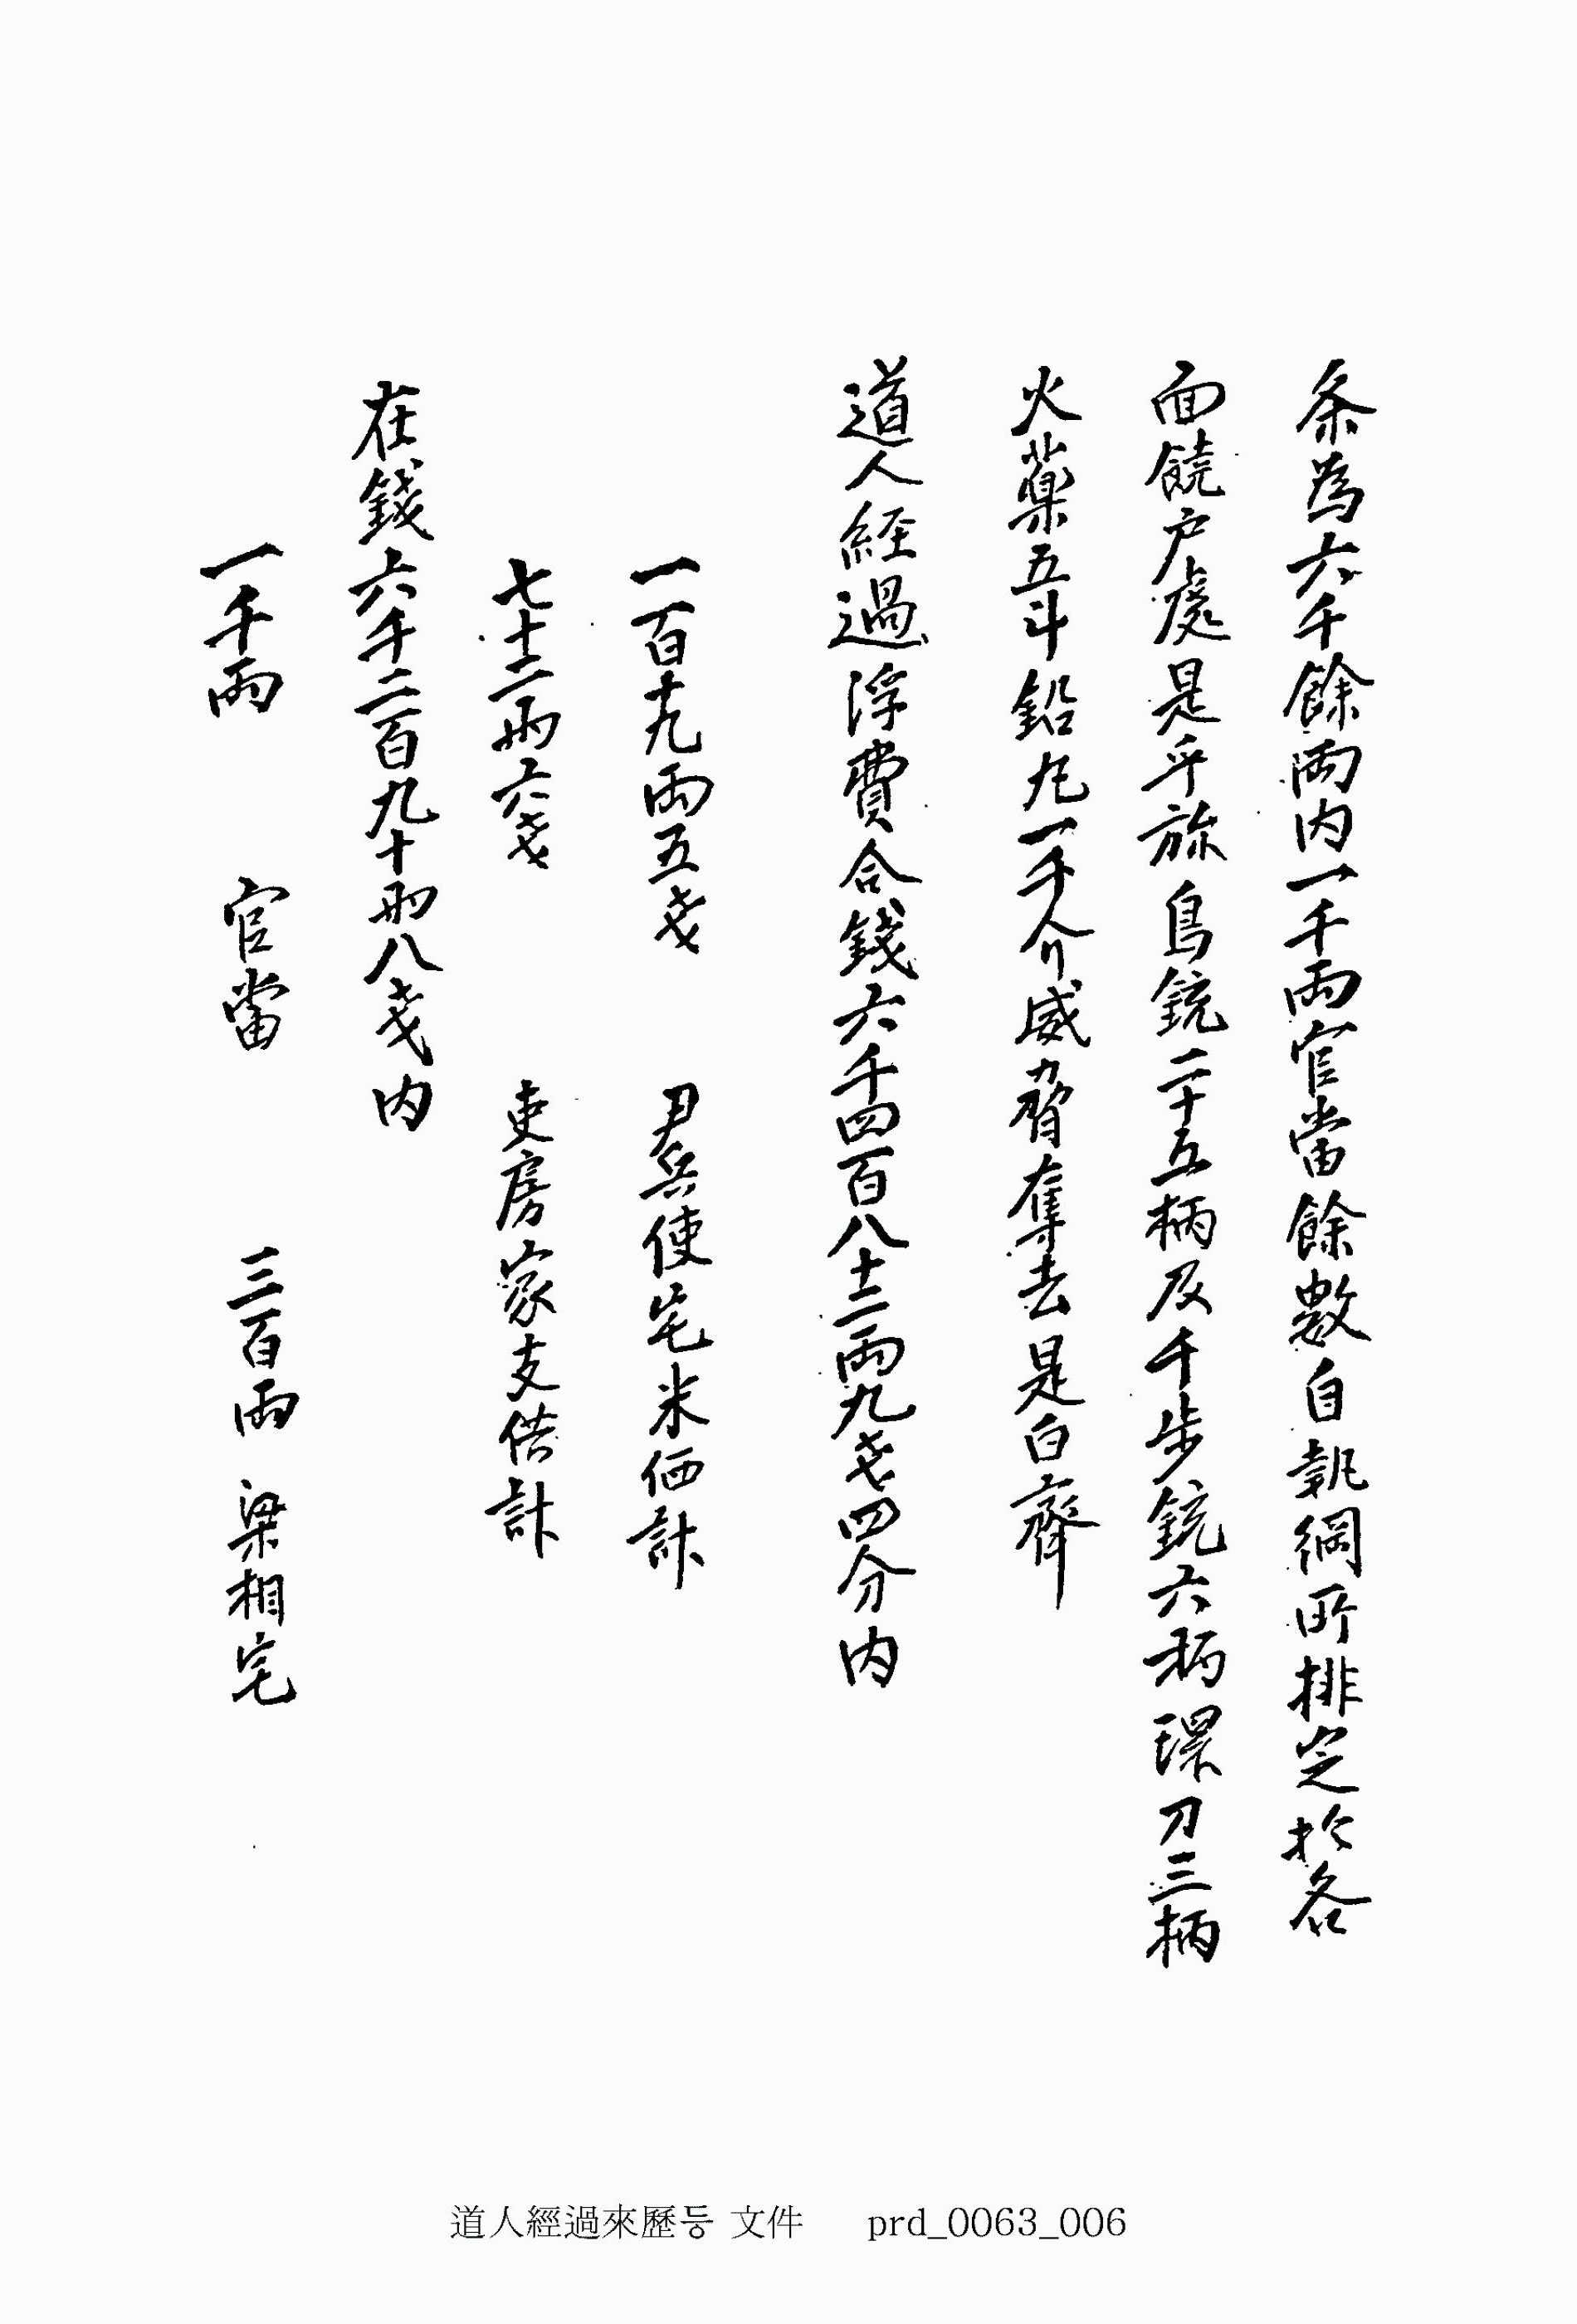 条為六千餘両内一千両官當餘數自執綱所排定於各
面饒户處是乎旀鳥銃二十五柄及千步銃六柄環刀三柄
火藥五斗鉛丸一千介威脅奪去是白齊
道人経過浮費合錢六千四百八十二両九戔四分内
一百十九両五戔 尹兵使宅米価計
七十二両六戔 吏房家支供計
在錢六千二百九十両八戔内
一千両 官當 三百両 梁相宅
道人經過來歷등 文件 prd_0063_006